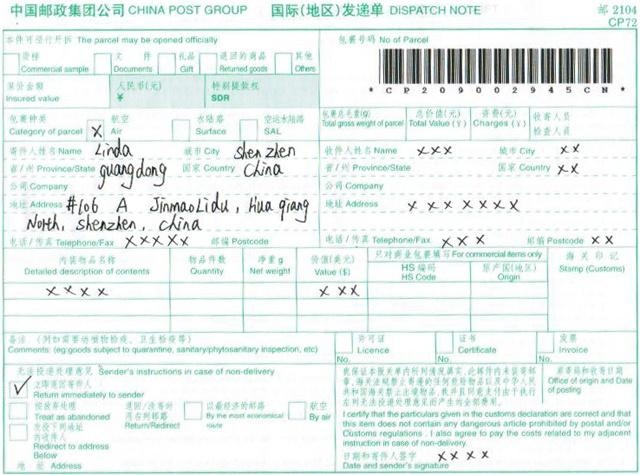 中国邮政集团公司 CHINA POST GROUP 国际(地区)发递单 DISPATCH NOTE 邮 2104
CP72
本件可径行开拆 The parcel may be opened officially
货样 Commercial sample 文件 Documents 礼品 Gift 退回的商品 Returned goods 其他 Others
包裹号码 No of Parcel
* CP200902945CN *
保价金额 Insured value 人民币(元) ¥ 特别提款权 SDR
包裹种类 Category of parcel X 航空 Air 水陆路 Surface 空运水陆路 SAL
包裹总毛重(g) Total gross weight of parcel 总价值(元) Total Value (Y) 资费(元) Charges (Y) 收寄人员 检查人员
寄件人姓名 Name Linda 城市 City Shenzhen
省/州 Province/State guangdong 国家 Country China
公司 Company
地址 Address #106 A JinmaoLidu, Huaqiang
North, Shenzhen, China
电话/传真 Telephone/Fax XXXXX 邮编 Postcode
收件人姓名 Name XXX 城市 City XX
省/州 Province/State 国家 Country XX
公司 Company
地址 Address XXXXXXX
电话/传真 Telephone/Fax XXX 邮编 Postcode XX
内装物品名称 Detailed description of contents 物品件数 Quantity 净重 g Net weight 价值(美元) Value ($)
只对商业包裹填写 For commercial items only
HS 编码 HS Code 原产国(地区) Origin
海关印记 Stamp (Customs)
XXXX XXX
备注: (例如需要动植物检疫、卫生检疫等)
Comments: (eg:goods subject to quarantine, sanitary/phytosanitary inspection, etc)
许可证 Licence No. 证书 Certificate No. 发票 Invoice No.
无法投递处理意见 Sender's instructions in case of non-delivery
✓ 立即退回寄件人
Return immediately to sender
按放弃处理
Treat as abandoned
退回/改寄时用右列邮路
Return/Redirect
以最经济的邮路
By the most economical route
航空
By air
改投下列地址内收件人
Redirect to address Below
地址 Address
我保证本报关单内所列情况真实,此邮件内未装寄邮章、海关法规禁止寄递的任何危险物品以及中华人民共和国海关禁止出境物品,
I certify that the particulars given in the customs declaration are correct and that
this item does not contain any dangerous article prohibited by postal and/or
Customs regulations . I also agree to pay the costs related to my adjacent
instruction in case of non-delivery.
日期和寄件人签字 XXXX
Date and sender's signature
原寄局和收寄日期
Office of origin and Date of posting